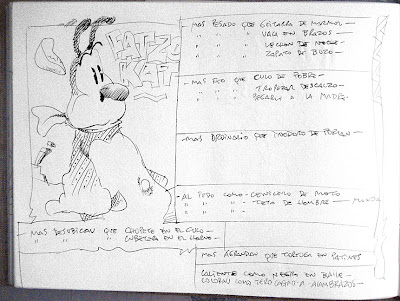 FATZO
KAT
- MAS PESADO QUE GUITARRA DE MARMOL -
" " " VACA EN BRAZOS
" " " LECHON DE NOCHE
" " " ZAPATO DE BUZO
- MAS FEO QUE CULO DE POBRE -
" " " TROPEZAR DESCALZO
" " " PEGARLE A LA MADRE
- MAS ORDINARIO QUE INODORO DE
- AL PEDO COMO - CENICERO DE MOTO
" " " TETA DE HOMBRE
- MAS DESUBICAU QUE CHUPETE EN EL CULO
" " " EN EL HORNO
MAS AGRANDAU QUE TORTUGA EN PATINES
CALIENTE COMO NEGRA EN BAILE
COLORAU COMO TERO A ALAMBRAZOS